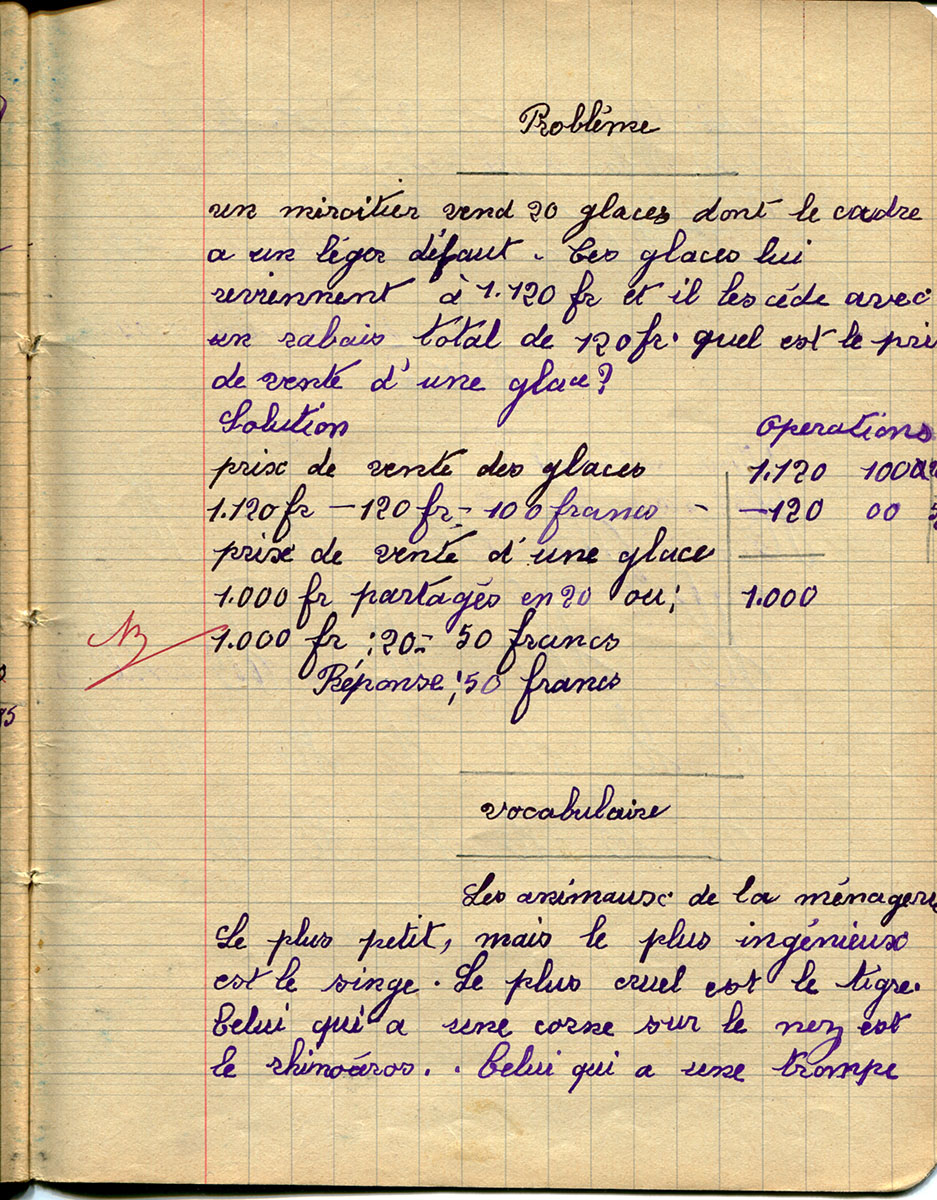 Problême
un miroitier vend 20 glaces dont le cadre
a un léger défaut. Ces glaces lui
reviennent à 1.120 fr et il les céde avec
un rabais total de 120 fr. quel est le pri
de vente d'une glace?
Solution Operations
prix de vente des glaces 1.120 1000
1.120 fr - 120 fr = 100 francs - -120 00
prix de vente d'une glace
1.000 fr partagés en 20 ou; 1.000
1.000 fr : 20 = 50 francs
Réponse : 50 francs
vocabulaire
Les animaux de la ménageri
Le plus petit, mais le plus ingénieux
est le singe. Le plus cruel est le tigre.
Celui qui a une corne sur le nez est
le rhinocéros.. Celui qui a une trompe